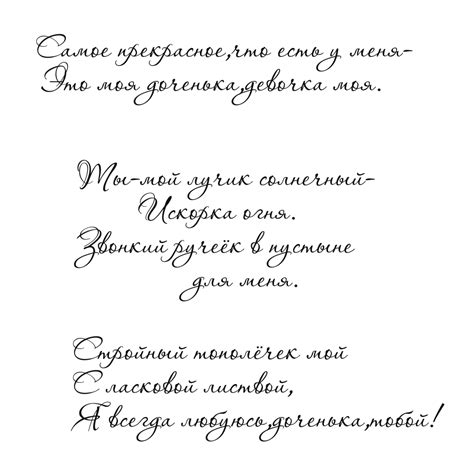 Самое прекрасное,что есть у меня-
Это моя доченька,девочка моя.
Ты-мой лучик солнечный-
Искорка огня.
Звонкий ручеёк в пустыне
для меня.
Стройный тополёчек мой
С ласковой листвой,
Я всегда любуюсь,доченька,тобой!